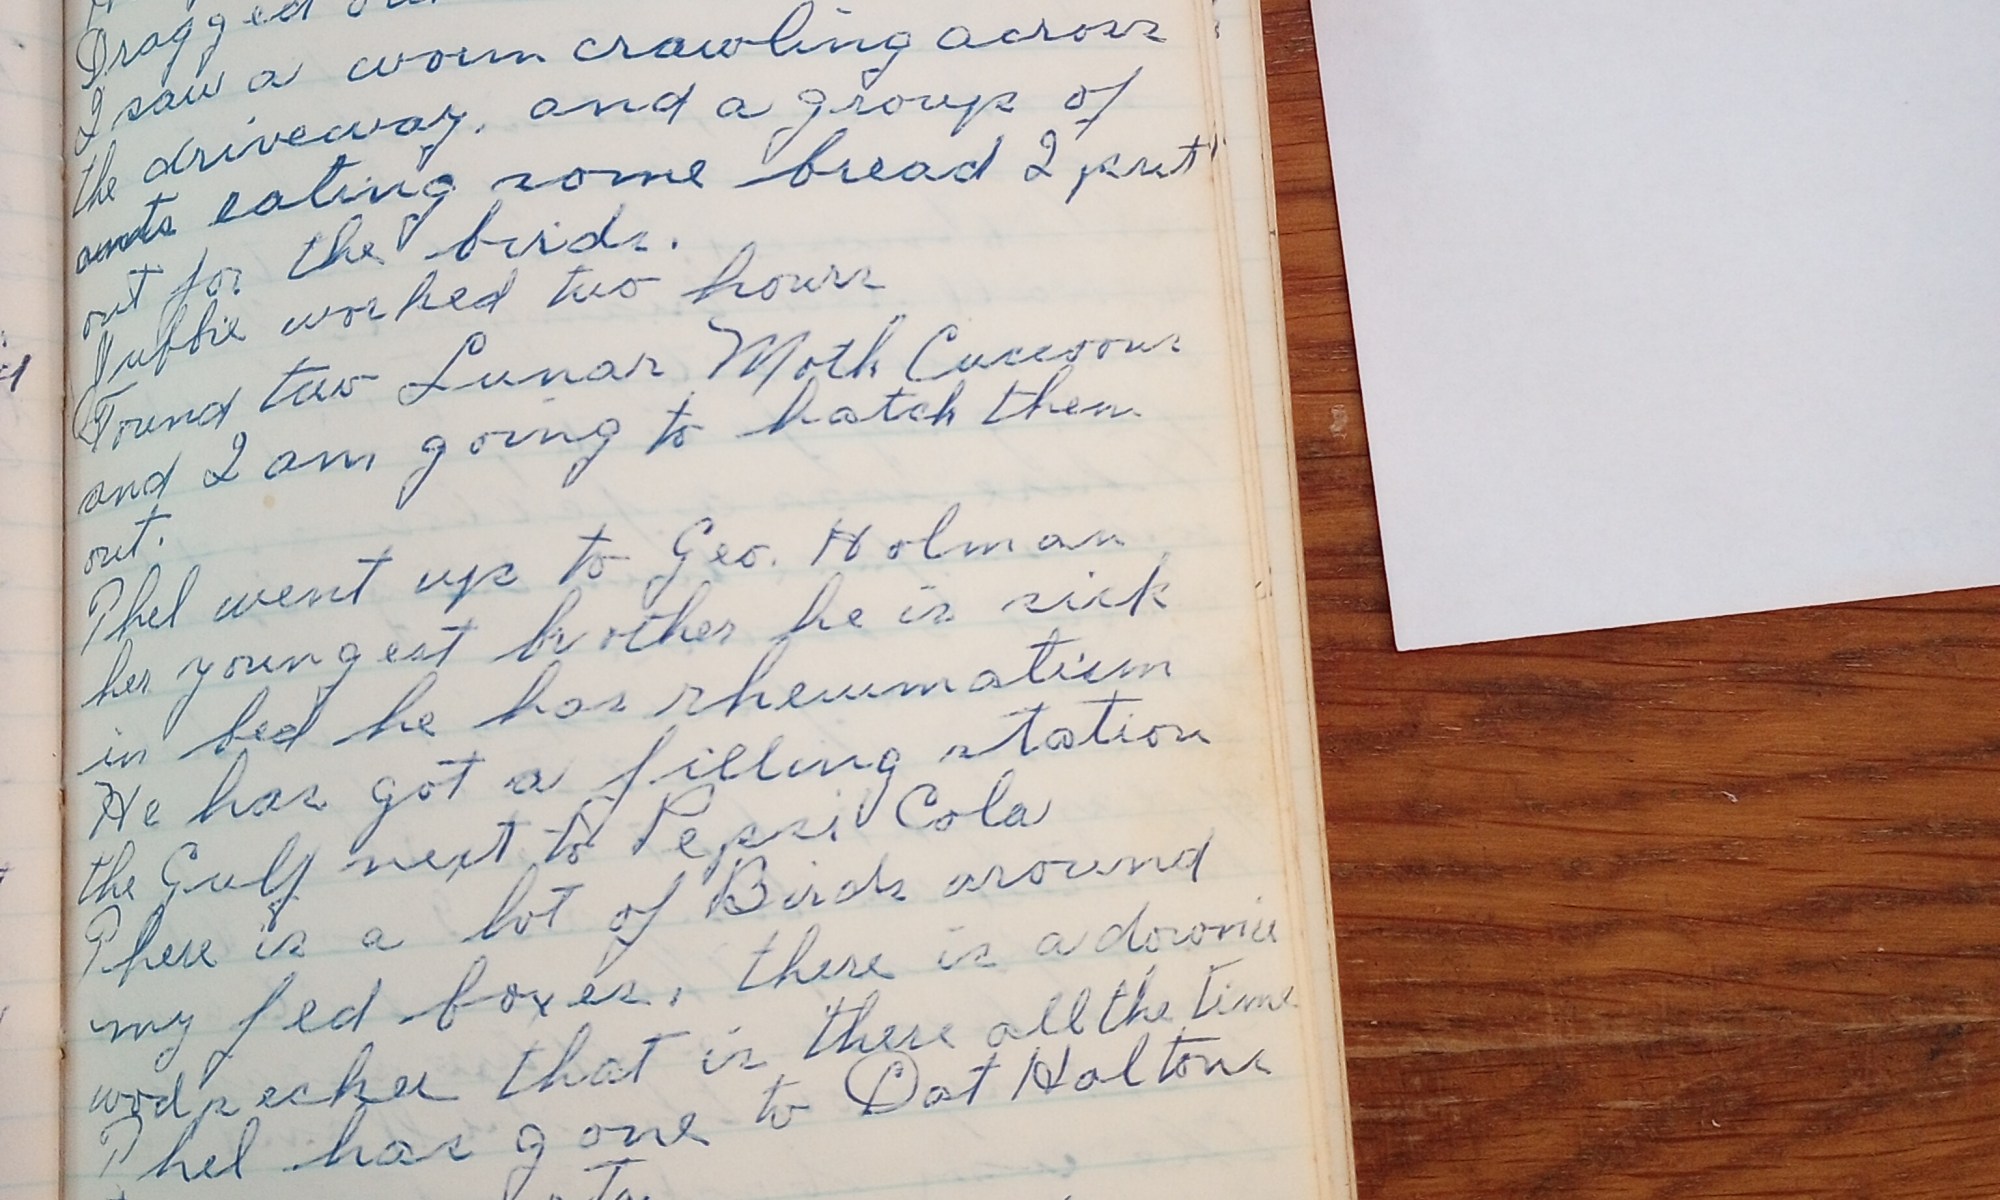 Dragged out
I saw a worm crawling across
the driveway, and a group of
ants eating some bread I put
out for the birds.
worked two hours
Found two Lunar Moth Cucoons
and I am going to hatch them
out.
Phel went up to Geo. Holman
her youngest brother he is sick
in bed he has rheumatism
He has got a filling station
the Gulf next to Pepsi Cola
There is a lot of Birds around
my fed boxes, there is a downie
wodpecker that is there all the time
Phel has gone to Dot Haltons